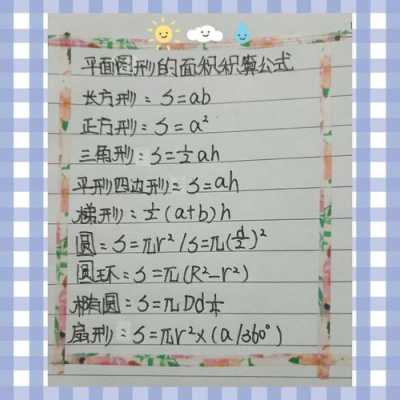 平面图形的面积积算公式
长方形：S=ab
正方形：S=a²
三角形：S=½ah
平形四边形=S=ah
梯形：½(a+b)h
圆：S=πr²/S=π(d/2)²
圆环：S=π(R²-r²)
椭圆：S=πDd¼
扇形：S=πr²×(a/360°)